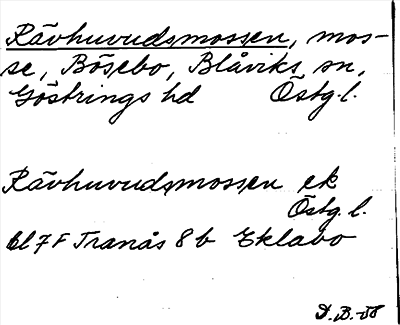 Rävhuvudsmossen, mos-
se, Bösebo, Blåviks sn,
Göstrings hd Östg. l.
Rävhuvudsmossen ek
Östg. l.
bl 7F Tranås 8b Eklabo
D.B.-58